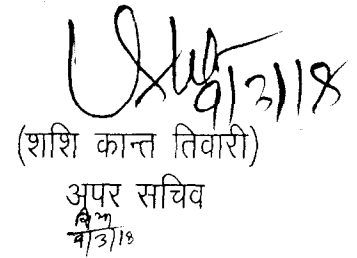 9/3/18
(शशि कान्त तिवारी)
अपर सचिव
9/3/18